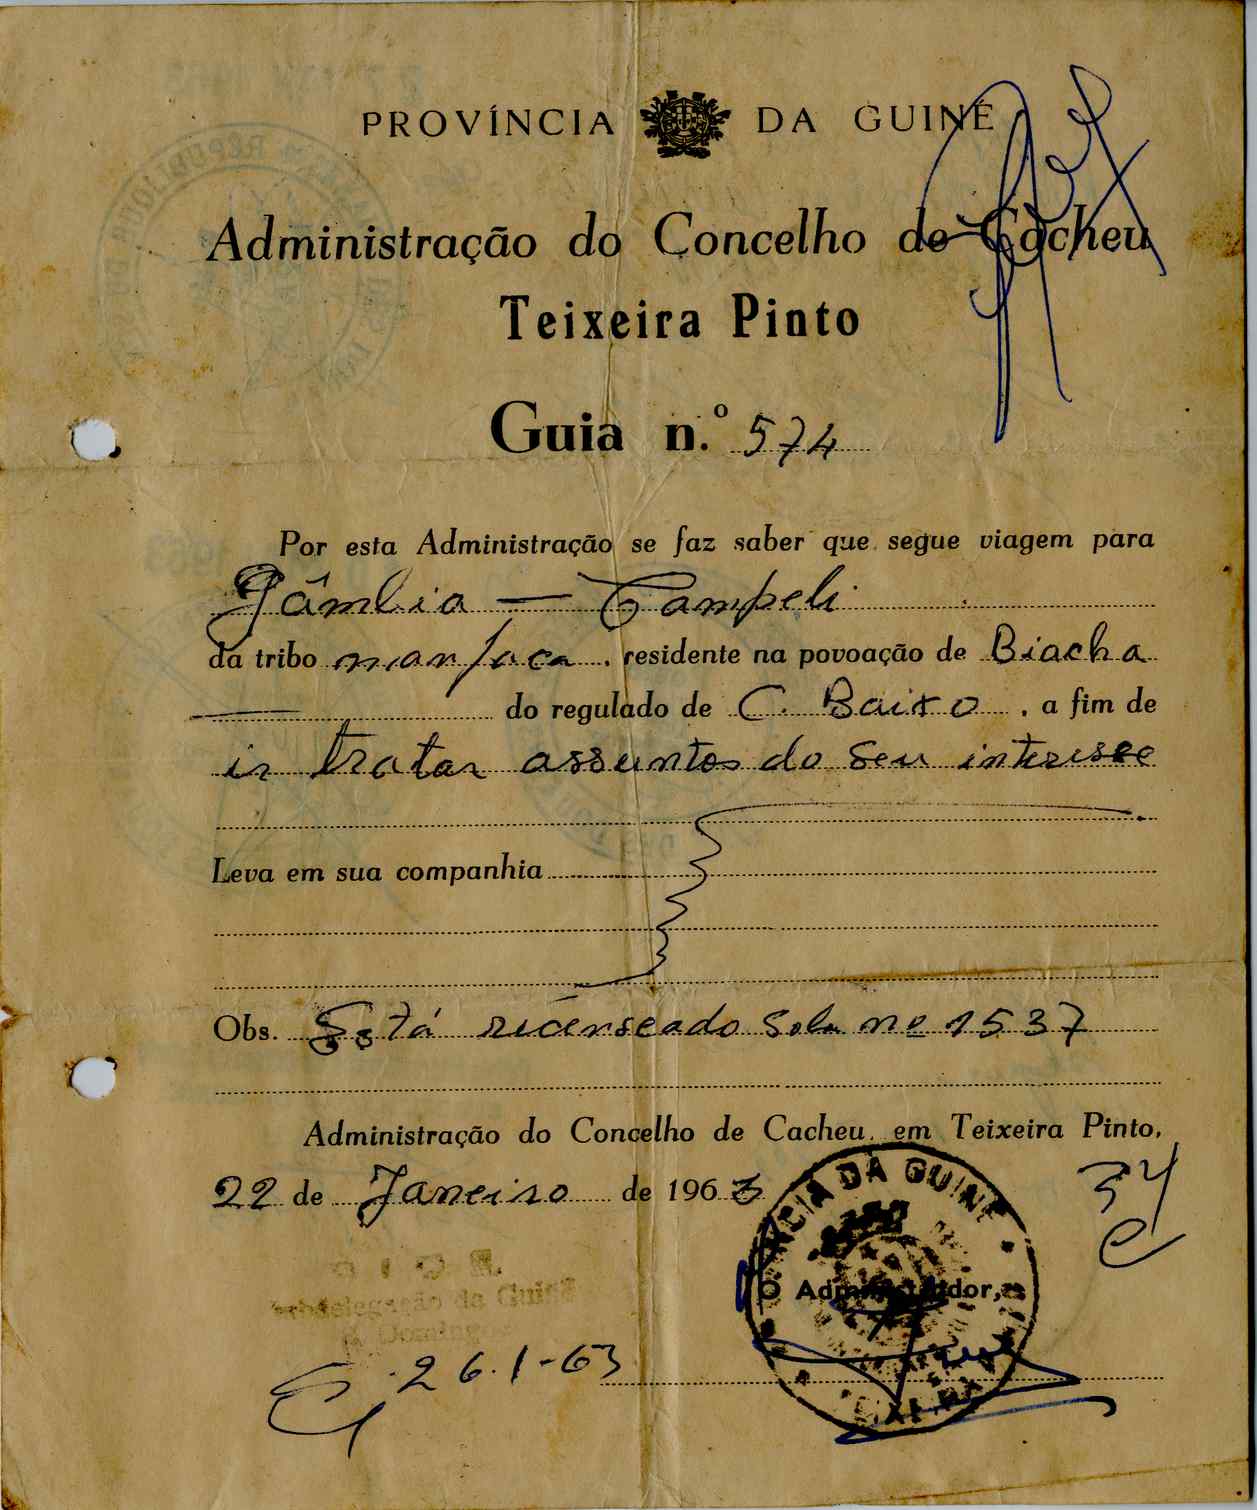 PROVÍNCIA DA GUINÉ
Administração do Concelho de Cacheu
Teixeira Pinto
Guia n.º 574
Por esta Administração se faz saber que segue viagem para
Gâmbia — Campeli
da tribo manjaca, residente na povoação de Biacha
do regulado de C. Baixo, a fim de
ir tratar assuntos do seu interesse
Leva em sua companhia
Obs. Está recenseado sob nº 1537
Administração do Concelho de Cacheu, em Teixeira Pinto,
22 de Janeiro de 1963
PROVÍNCIA DA GUINÉ
O Administrador,
Subdelegação da Guiné
26.1-63